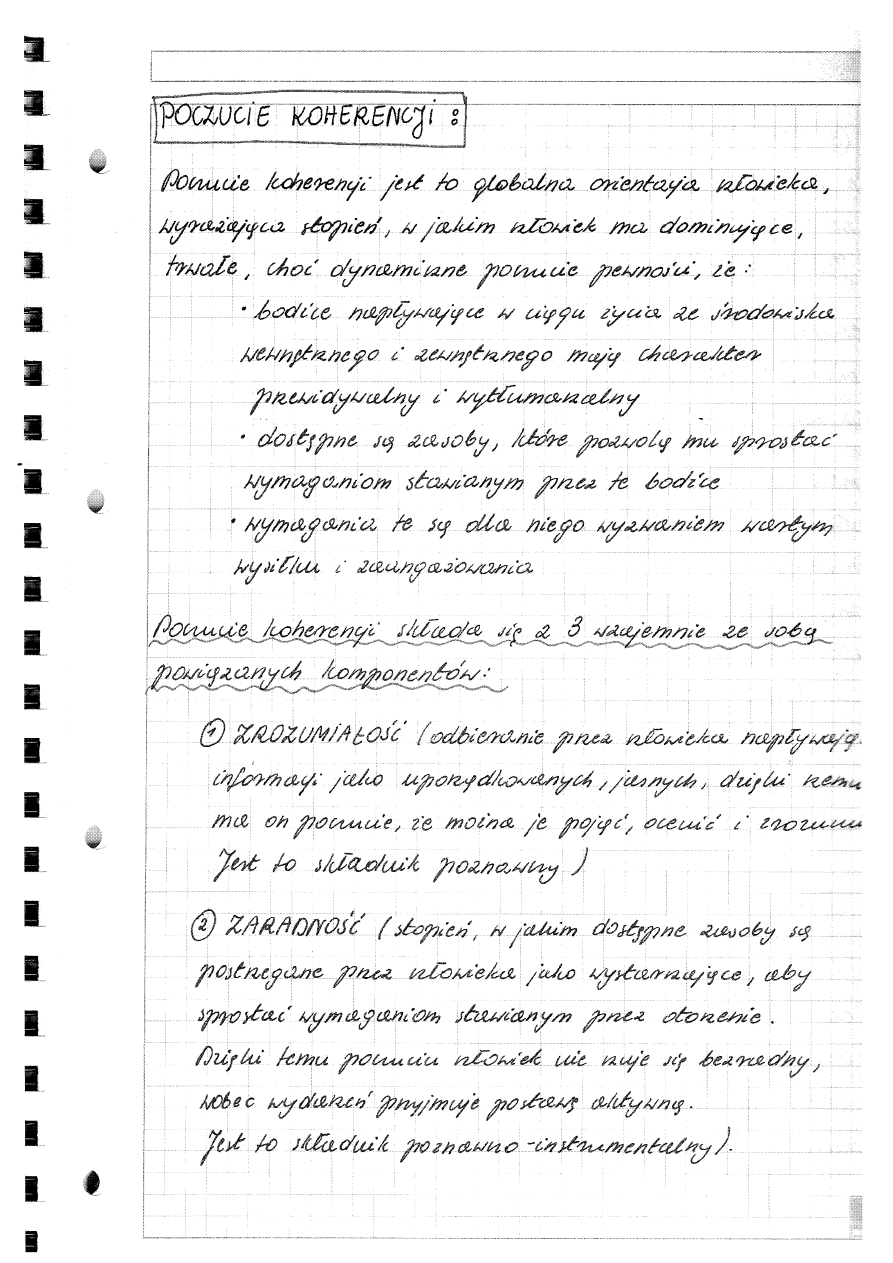 POCZUCIE KOHERENCJI :
Poczucie koherencji jest to globalna orientacja człowieka,
wyrażająca stopień, w jakim człowiek ma dominujące,
trwałe, choć dynamiczne poczucie pewności, że:
• bodźce napływające w ciągu życia ze środowiska
wewnętrznego i zewnętrznego mają charakter
przewidywalny i wytłumaczalny
• dostępne są zasoby, które pozwolą mu sprostać
wymaganiom stawianym przez te bodźce
• wymagania te są dla niego wyzwaniem wartym
wysiłku i zaangażowania
Poczucie koherencji składa się z 3 wzajemnie ze sobą
powiązanych komponentów:
1 ZROZUMIAŁOŚĆ (odbieranie przez człowieka napływając
informacji jako uporządkowanych, jasnych, dzięki czemu
ma on poczucie, że można je pojąć, ocenić i zrozumi
Jest to składnik poznawczy)
2 ZARADNOŚĆ (stopień, w jakim dostępne zasoby są
postrzegane przez człowieka jako wystarczające, aby
sprostać wymaganiom stawianym przez otoczenie.
Dzięki temu poczuciu człowiek nie czuje się bezradny,
wobec wydarzeń przyjmuje postawę aktywną.
Jest to składnik poznawczo-instrumentalny).